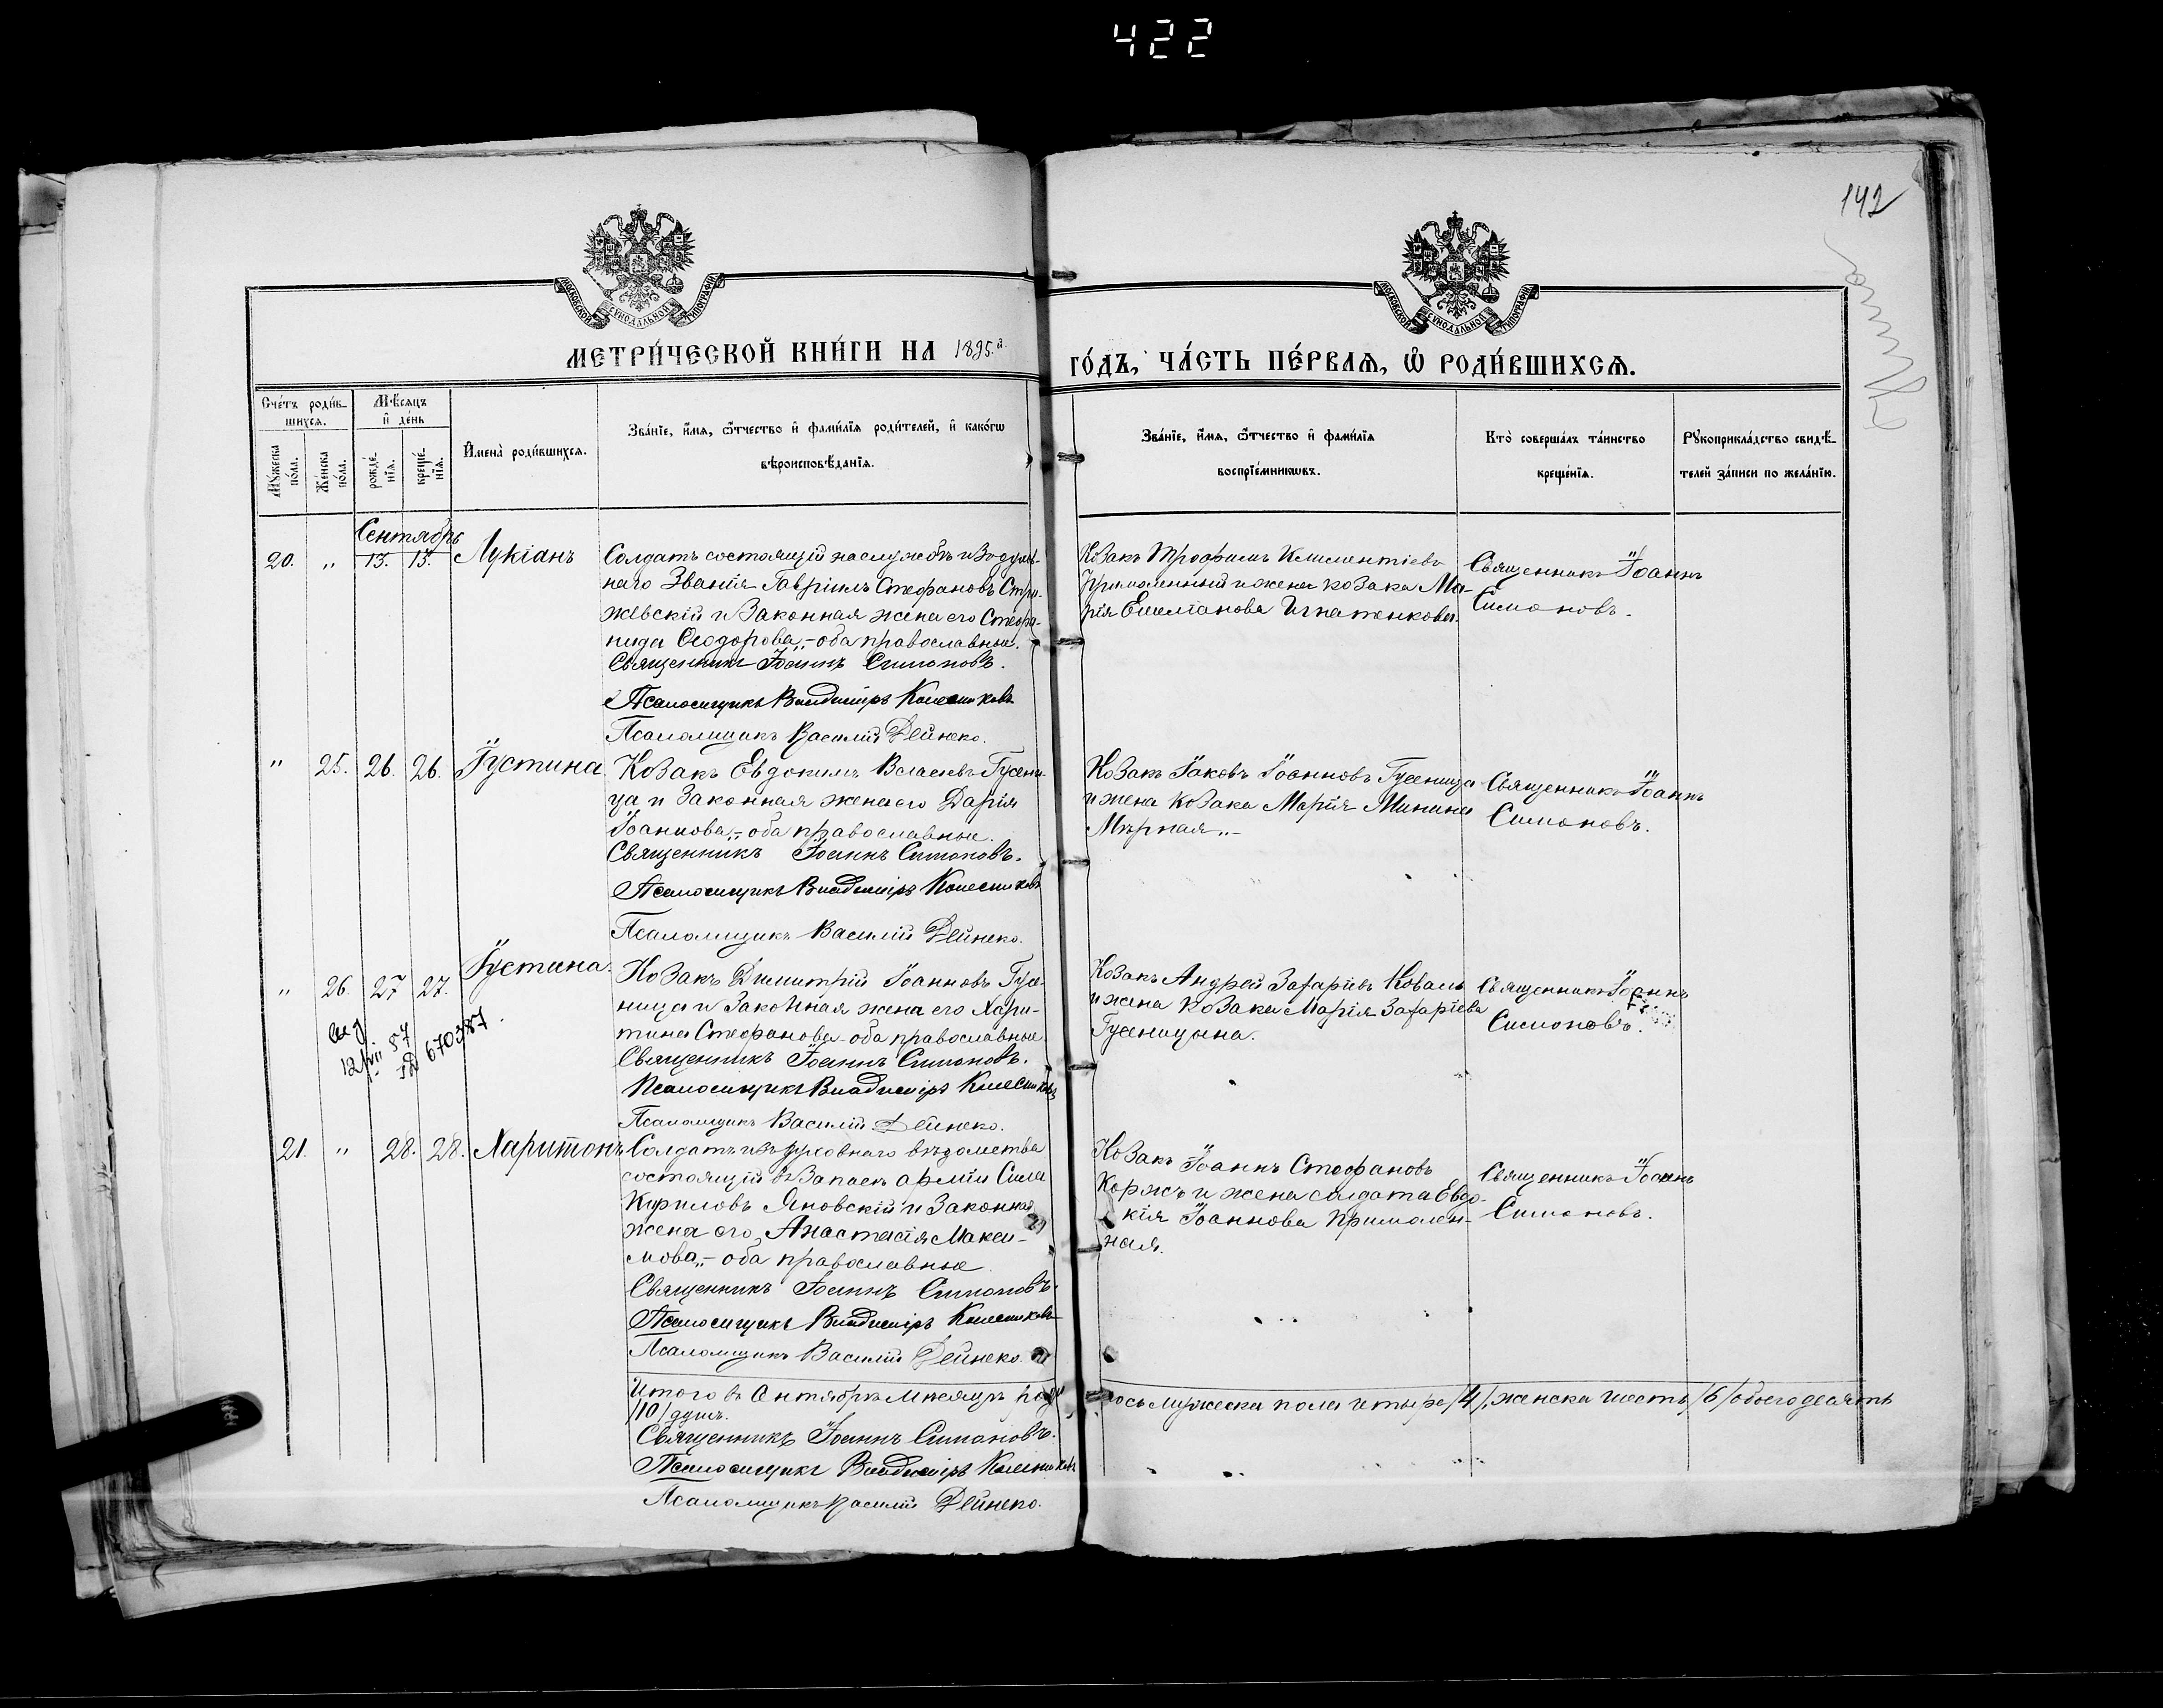 422
142
МОСКОВСКОЙ СУНОДАЛЬНОЙ ТИПОГРАФІИ
МОСКОВСКОЙ СУНОДАЛЬНОЙ ТИПОГРАФІИ
МЕТРИ́ЧЕСКОЙ КНИ́ГИ НА 1895.й ГО́ДЪ, ЧА́СТЬ ПЕ́РВАѦ, Ѡ РОДИ́ВШИХСѦ.
Сче́тъ роди́в-
шихсѧ.
Мѣ́сѧцъ
и де́нь
Мꙋ́жеска
по́ла.
Же́нска
по́ла.
рожде́-
нїѧ.
креще́-
нїѧ.
И҆мена̀ роди́вшихсѧ.
Зва́нїе, и҆́мѧ, ѻ҆́тчество и҆ фами́лїѧ роди́телей, и҆ како́гѡ
вѣроисповѣ́данїѧ.
Зва́нїе, и҆́мѧ, ѻ҆́тчество и҆ фами́лїѧ
воспрїе́мникѡвъ.
Кто̀ соверша́лъ та́инство
креще́нїѧ.
Рꙋкоприкла́дство свидѣ́-
телей за́писи по жела́нїю.
Сентябрь
20. „ 13. 13. Лукіанъ
Солдатъ состоящій на службѣ
наго Званія Гавріилъ Стефановъ Стри-
жевскій и Законная жена его Стефа-
нида Ѳеодорова,- оба православные.
Священникъ Іоаннъ Симоновъ.
Псаломщикъ Владиміръ Колесниковъ
Псаломщикъ Василій Дейнеко.
Козакъ Трофимъ Климентіевъ
и жена козака Ма-
рія Емеліанова Игнатенкова.
Священникъ Іоаннъ
Симоновъ.
„ 25. 26. 26. Іустина
Козакъ Евдокимъ Власіевъ Гусени-
ца и Законная жена его Дарія
Іоаннова,- оба православные.
Священникъ Іоаннъ Симоновъ.
Псаломщикъ Владиміръ Колесниковъ
Псаломщикъ Василій Дейнеко.
Козакъ Іаковъ Іоанновъ Гусеница
и жена козака Марія Минина
Мѣрная.
Священникъ Іоаннъ
Симоновъ.
„ 26. 27 27. Іустина.
12/VII 57
670387.
Козакъ Димитрій Іоанновъ Гусе-
ница и Законная жена его Хари-
тина Стефанова- оба православные
Священникъ Іоаннъ Симоновъ.
Псаломщикъ Владиміръ Колесниковъ
Псаломщикъ Василій Дейнеко.
Козакъ Андрей Захаріевъ Коваль
и жена козака Марія Захаріева
Гусеницына.
Священникъ Іоаннъ
Симоновъ.
21. „ 28. 28. Харитонъ
Солдатъ изъ духовнаго вѣдомства
состоящій въ Запасѣ арміи Сила
Кириловъ Яновскій и Законная
жена его, Анастасія Макси-
мова,- оба православные
Священникъ Іоаннъ Симоновъ.
Псаломщикъ Владиміръ Колесниковъ
Псаломщикъ Василій Дейнеко.
Козакъ Іоаннъ Стефановъ
Коржъ и жена солдата Евдо-
кія Іоаннова Примолен-
ная.
Священникъ Іоаннъ
Симоновъ.
Итого въ Сентябрѣ мѣсяцѣ родилось мужеска пола четыре /4/, женска шесть /6/ обоего десять
/10/ душъ.
Священникъ Іоаннъ Симоновъ.
Псаломщикъ Владиміръ Колесниковъ
Псаломщикъ Василій Дейнеко.